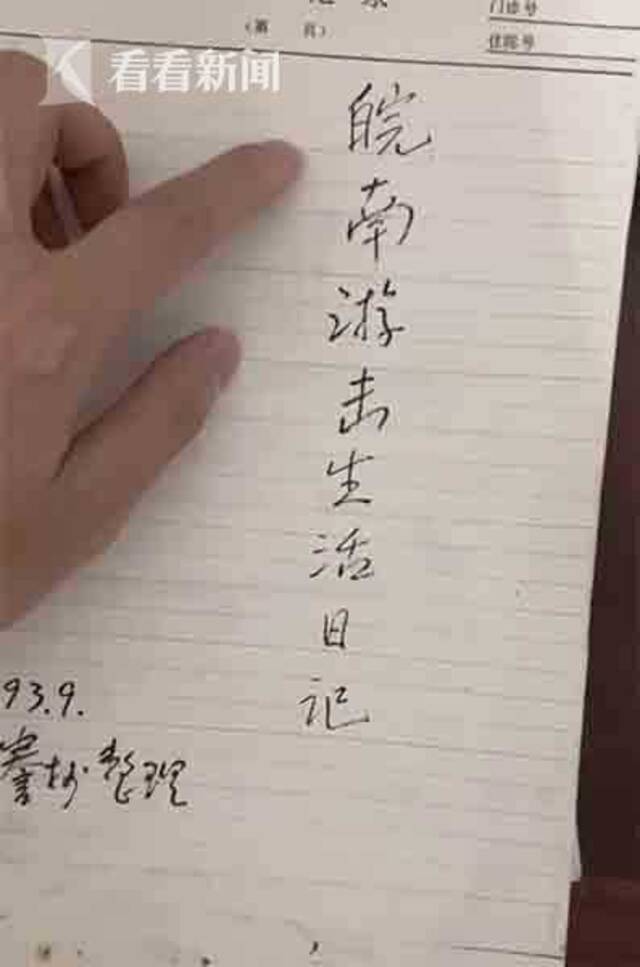 门诊号
(第 页)
住院号
看看新闻
皖南游击生活日记
93.9.
抄整理